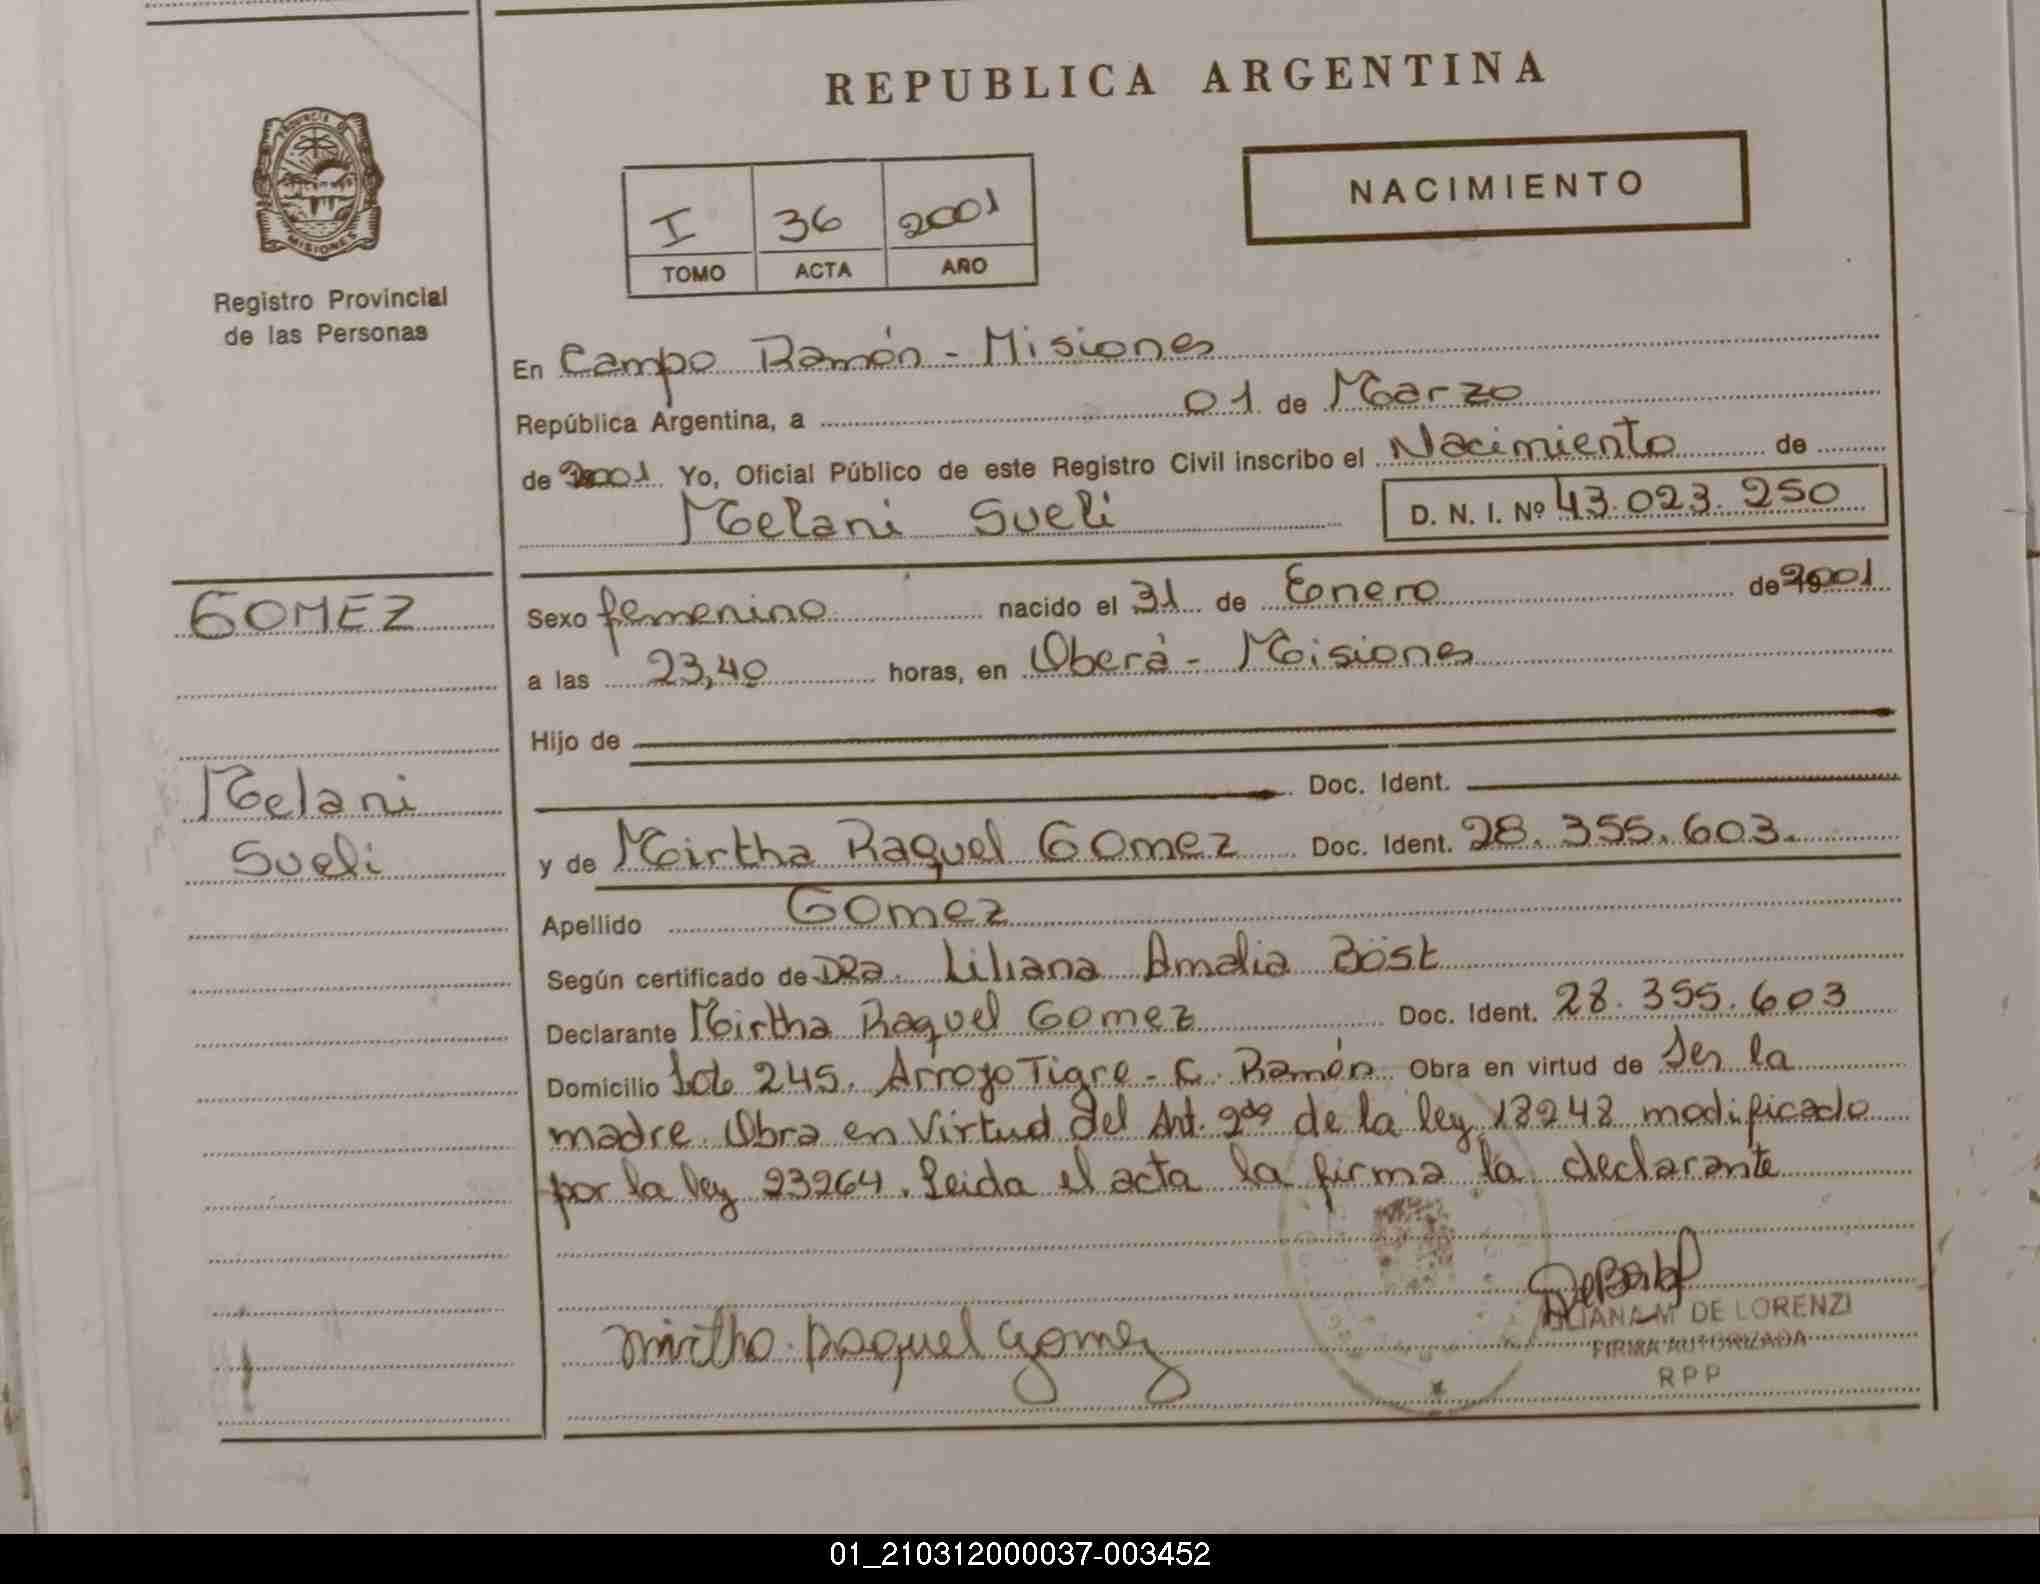 REPUBLICA ARGENTINA
PROVINCIA DE
MISIONES
Registro Provincial
de las Personas
I 36 2001
TOMO ACTA AÑO
NACIMIENTO
En Campo Ramón - Misiones
República Argentina, a 01 de Marzo
de 2001 Yo, Oficial Público de este Registro Civil inscribo el Nacimiento de
Melani Sueli D. N. I. Nº 43.023.250
GOMEZ
Melani
Sueli
Sexo femenino nacido el 31 de Enero de 2001
a las 23,40 horas, en Oberá - Misiones
Hijo de
Doc. Ident.
y de Mirtha Raquel Gomez Doc. Ident. 28.355.603.
Apellido Gomez
Según certificado de Dra. Liliana Amalia Böst
Declarante Mirtha Raquel Gomez Doc. Ident. 28.355.603
Domicilio Lote 245. Arroyo Tigre - C. Ramón Obra en virtud de Ser la
madre. Obra en Virtud del Art. 2do de la ley 18248 modificado
por la ley 23264. Leida el acta la firma la declarante
Mirtha Raquel Gomez
M DE LORENZI
FIRMA AUTORIZADA
RPP
01_210312000037-003452